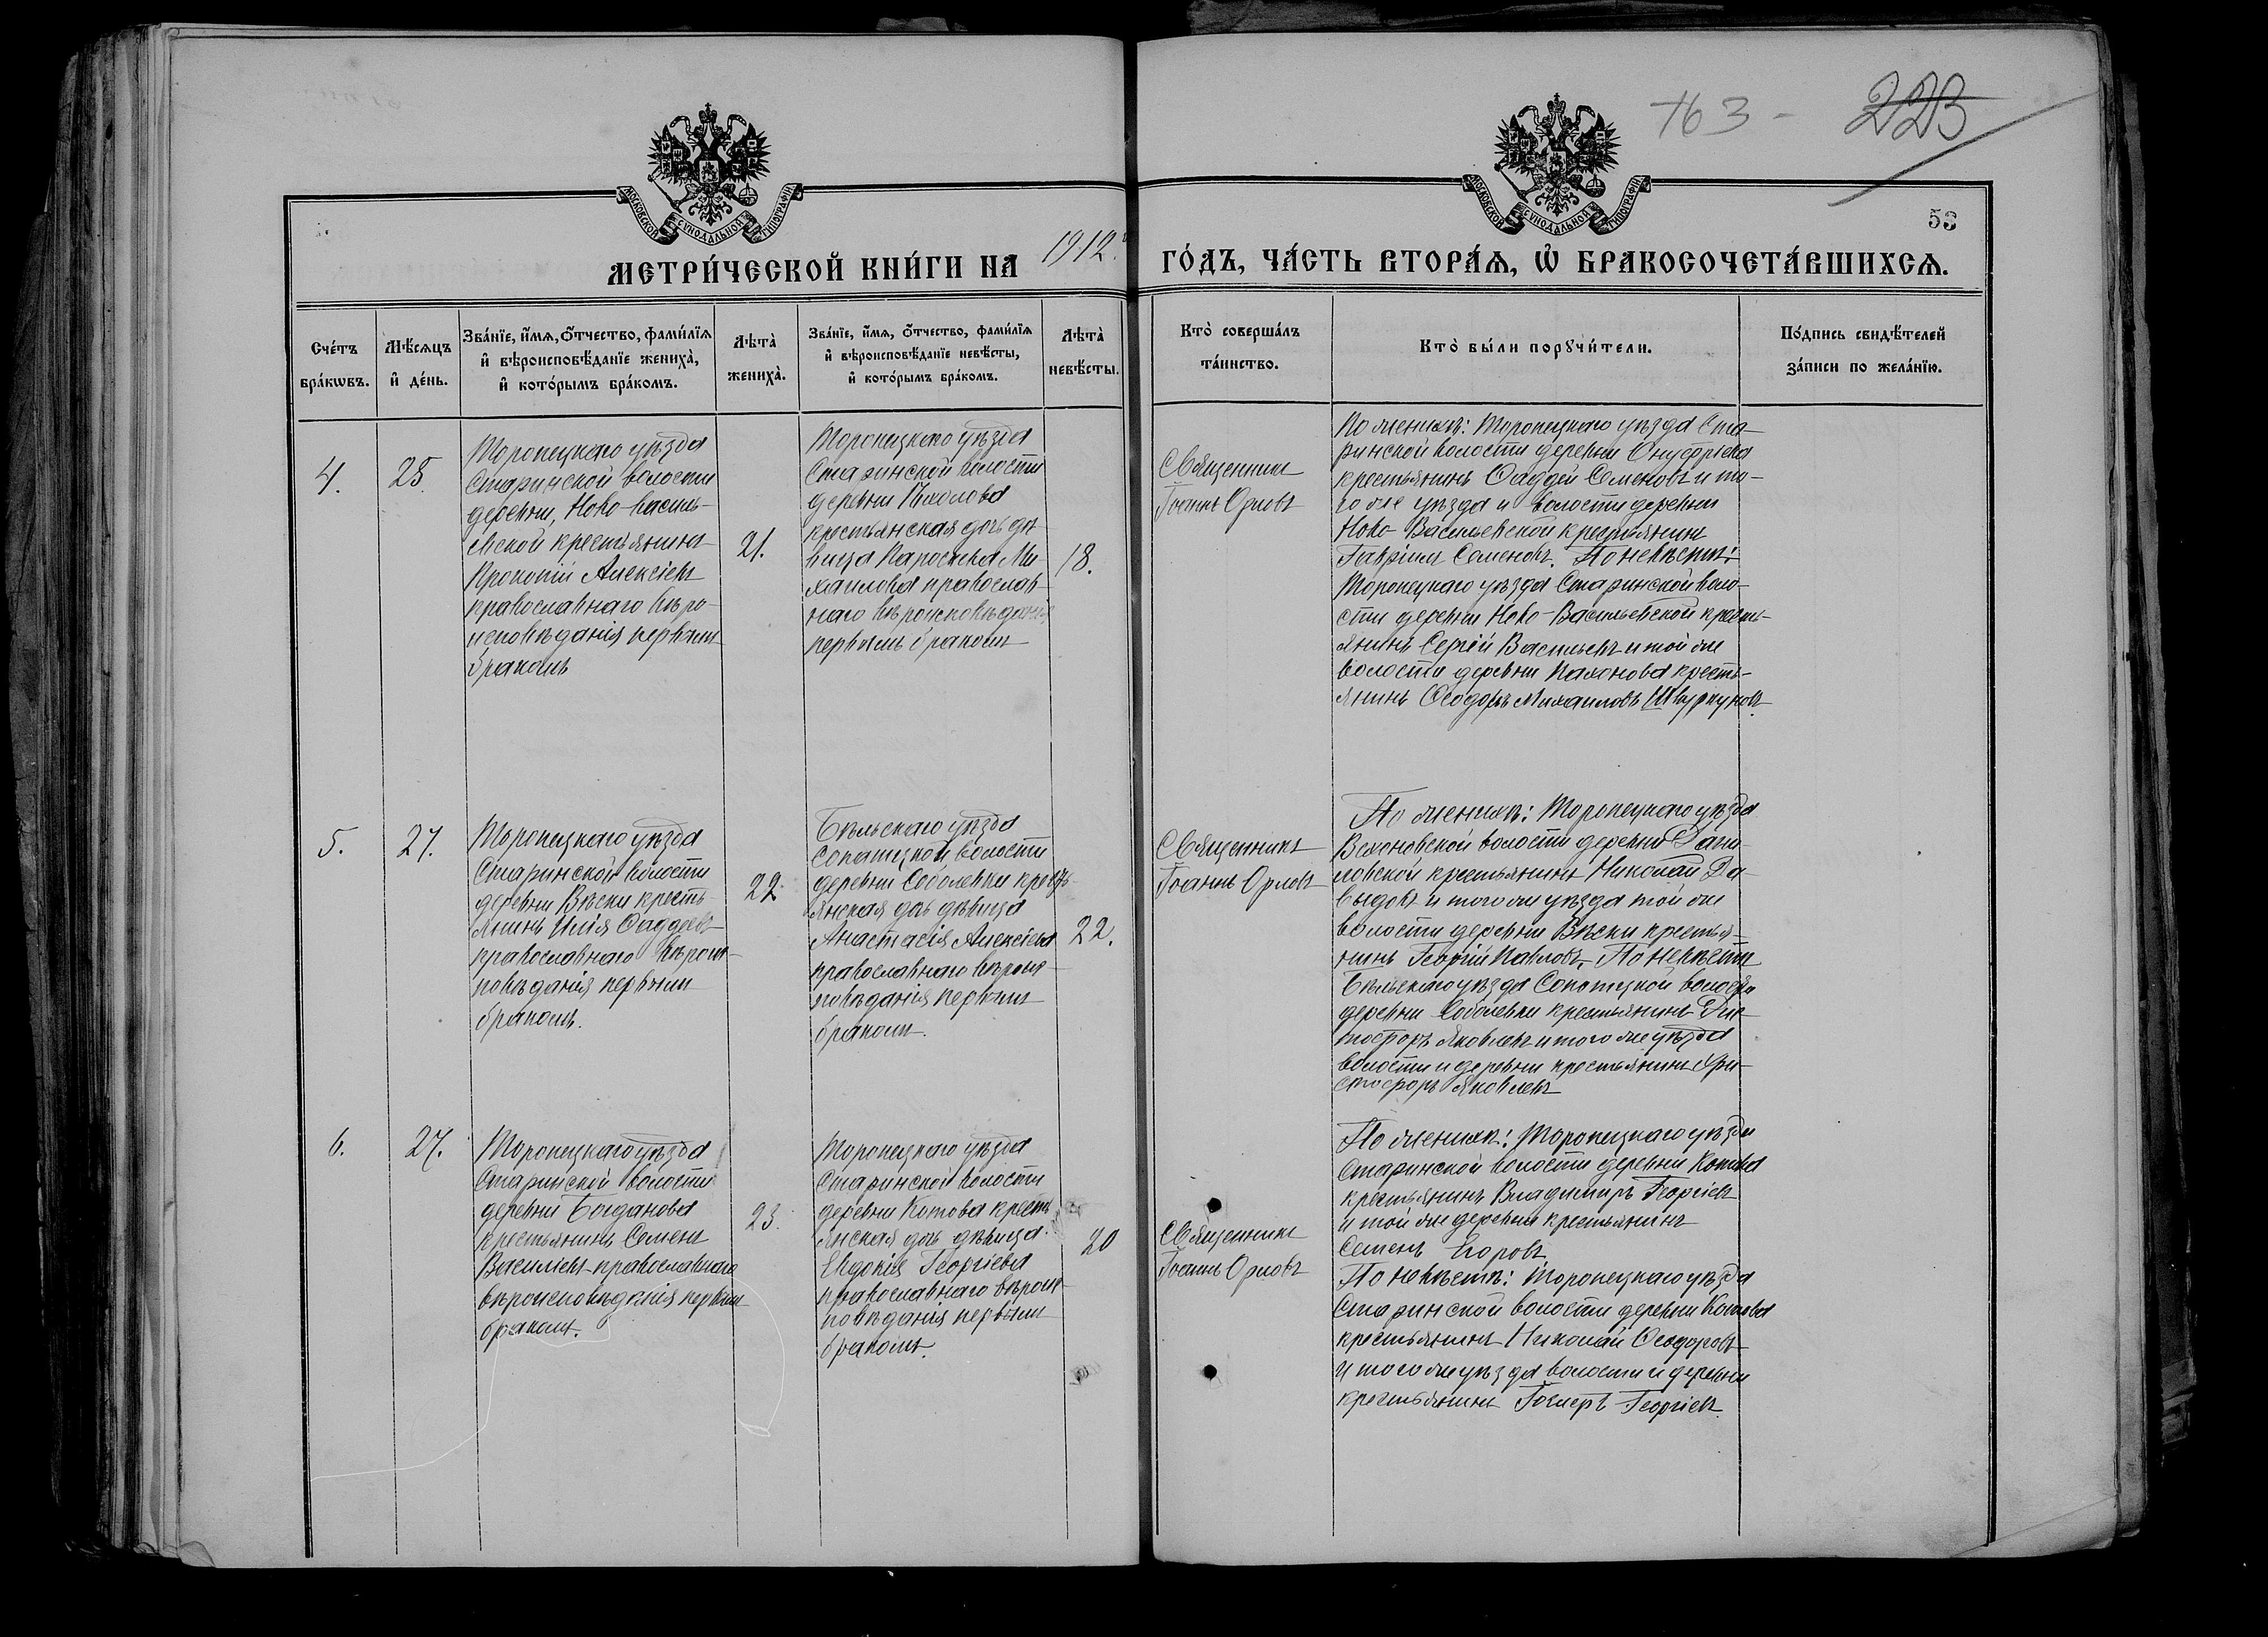 763 - 223
53
МОСКОВСКОЙ СУНОДАЛЬНОЙ ТИПОГРАФІИ
МОСКОВСКОЙ СУНОДАЛЬНОЙ ТИПОГРАФІИ
МЕТРИ́ЧЕСКОЙ КНИ́ГИ НА 1912 ГО́ДЪ, ЧА́СТЬ ВТОРА́Ѧ, Ѡ҆ БРАКОСОЧЕТА́ВШИХСѦ.
Сче́тъ
бра́кѡвъ.
Мѣ́сяцъ
и҆ де́нь.
Зва́нїе, и҆́мѧ, ѻ҆́тчество, фами́лїѧ
и҆ вѣроисповѣ́данїе жениха̀,
и҆ кото́рымъ бра́комъ.
Лѣта̀
жениха̀.
Зва́нїе, и҆́мѧ, ѻ҆́тчество, фами́лїѧ
и҆ вѣроисповѣ́данїе невѣ́сты,
и҆ кото́рымъ бра́комъ.
Лѣта̀
невѣ́сты.
Кто̀ соверша́лъ
та́инство.
Кто̀ бы́ли порꙋчи́тели.
По́дпись свидѣ́телей
за́писи по жела́нїю.
4.
25.
Торопецкаго уѣзда
Старинской волости
деревни, Ново-Василь-
евской крестьянинъ
Прокопій Алексіевъ
православнаго вѣро-
исповѣданія первымъ
бракомъ
21.
Торопецкаго уѣзда
Старинской волости
деревни
крестьянская дочь дѣ-
вица Параскева Ми-
хаилова православ-
наго вѣроисповѣданія
первымъ бракомъ
18.
Священникъ
Іоаннъ Орловъ
По женихѣ: Торопецкаго уѣзда Ста-
ринской волости деревни Онуфріева
крестьянинъ Ѳаддей Семеновъ и то-
го же уѣзда и волости деревни
Ново-Васильевской крестьянинъ
Гавріилъ Семеновъ. По невѣстѣ:
Торопецкаго уѣзда Старинской воло-
сти деревни Ново-Васильевской кресть-
янинъ Сергій Васильевъ и той же
волости деревни Пахонова кресть-
янинъ Ѳеодоръ Михаиловъ Шкуркуновъ
5.
27.
Торопецкаго уѣзда
Старинской волости
деревни Вѣски кресть-
янинъ Илія Ѳаддеевъ
православнаго вѣроис-
повѣданія первымъ
бракомъ.
22
Бѣльскаго уѣзда
Сопотцкой волости
деревни Соболевки кресть-
янская дочь дѣвица
Анастасія Алексіева
православнаго вѣроис-
повѣданія первымъ
бракомъ.
22.
Священникъ
Іоаннъ Орловъ
По женихѣ: Торопецкаго уѣзда
волости деревни Дани-
ловской крестьянинъ Николай Да-
выдовъ и того же уѣзда той же
волости деревни Вѣски крестья-
нинъ Георгій Павловъ. По невѣстѣ
Бѣльскаго уѣзда Сопотцкой волости
деревни Соболевки крестьянинъ
Яковлевъ и того же уѣзда
волости и деревни крестьянинъ Хри-
стофоръ Яковлевъ
6.
27.
Торопецкаго уѣзда
Старинской волости
деревни Богданова
крестьянинъ Семенъ
Васильевъ православнаго
вѣроисповѣданія первымъ
бракомъ.
23.
Торопецкаго уѣзда
Старинской волости
деревни Котова кресть-
янская дочь дѣвица
Евдокія Георгіева
православнаго вѣроис-
повѣданія первымъ
бракомъ.
20
Священникъ
Іоаннъ Орловъ
По женихѣ: Торопецкаго уѣзда
Старинской волости деревни Котова
крестьянинъ Владимиръ Георгіевъ
и той же деревни крестьянинъ
Семенъ Егоровъ
По невѣстѣ: Торопецкаго уѣзда
Старинской волости деревни Котова
крестьянинъ Николай Ѳеодоровъ
и того же уѣзда волости и деревни
крестьянинъ Георгіевъ